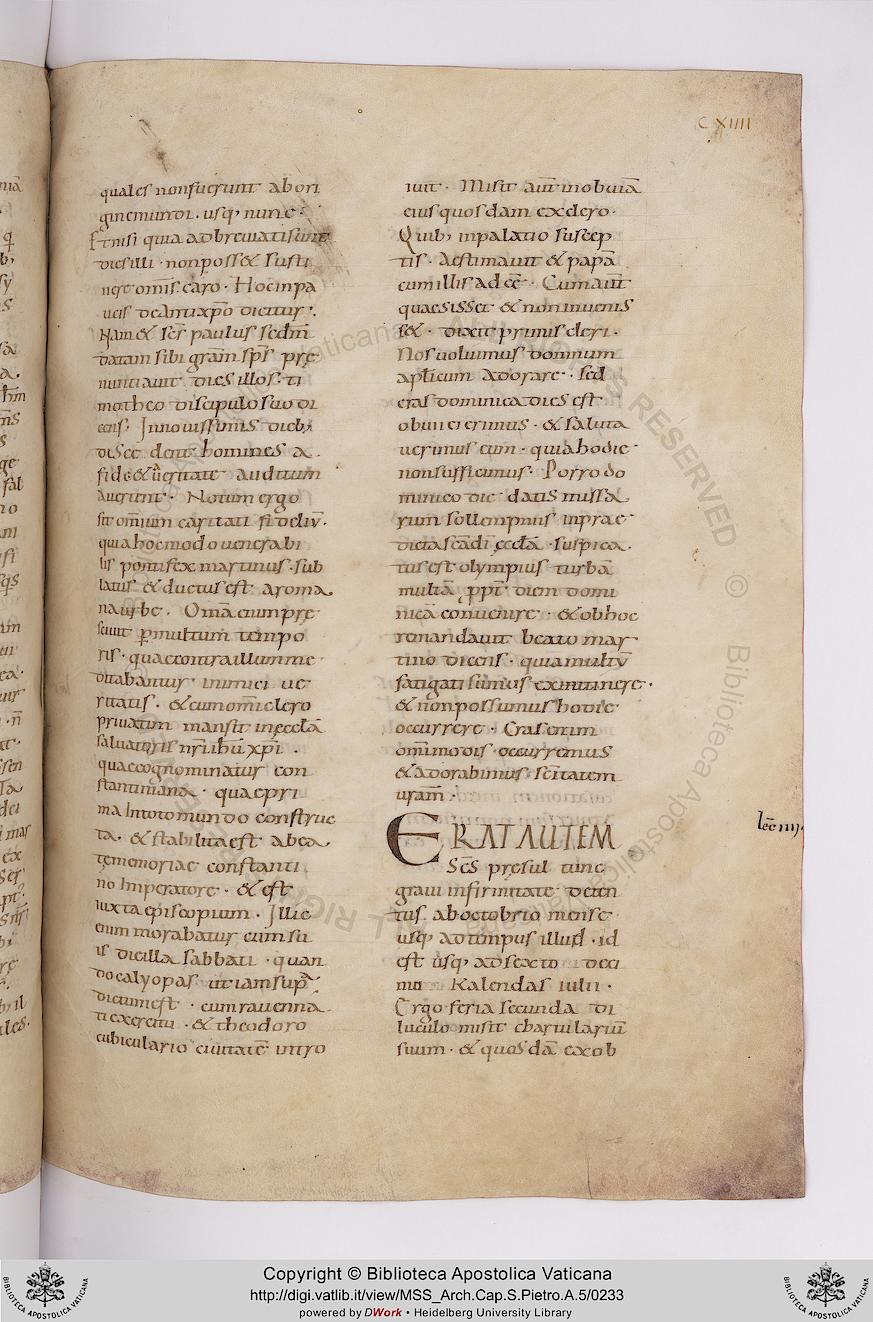 C XIIII
quales nonfuerunt abori
gine mundi. usq; nunc.
Et nisi quia adbreviati sunt
dies illi. non poss& susti
nere omis caro. Hoc in pa
ucis de antixpo dicitur.
Nam & scs paulus sedm
datam sibi gram sps pre
nuntiavit dies illos. ti
motheo discipulo suo di
cens. In novissimis dieb;
discedent homines a
fide & veritate auditum
averunt. Notum ergo
sit omnium caritati fideliu.
quia hoc modo venerabi
lis pontifex martinus. sub
latus & ductus est a roma
na urbe. Oma cium pre
scivit p multum tempo
ris. quae contra illum me
ditabantur inimici ve
ritatis. & cum omi clero
privatim mansit in eccla
salvatoris nri ihu xpi.
quae cognominatur con
stantiniana. quae pri
ma in toto mundo construc
ta. & stabilita est a bea
te memoriae constanti
no Imperatore. & est
iuxta episcopium. Illic
enim morabatur cum su
is die illa sabbati. quan
do calyopas ut iam sup
dictum est. cum ravenna
ti exercitu. & theodoro
cubiculario civitate intro
ivit. Misit aut in obvia
eius quosdam ex clero.
Quib; in palatio suscep
tis. Aestimavit & papa
cum illis ad ee. Cum aut
quaesisset & non invenis
s&. dixit primis cleri.
Nos voluimus domnum
aplicum adorare. sed
cras dominica dies est
obvii ei erimus. & saluta
verimus eum. quia hodie
non sufficimus. Porro do
minico die datis missa
rum sollempniis in prae
dicta sca di eccla. suspica
tus est olympius turba
multa ppt diem domi
nica convenire. & ob hoc
renandavit beato mar
tino dicens. quia multu
fatigati sumus ex itinere.
& non possumus hodie
occurrere. Cras enim
omimodis occurremus
& adorabimus scitatem
vram.
lec IIIJ.
ERAT AUTEM
Scs presul tunc
gravi infirmitate deten
tus. ab octobrio mense
usq; ad tempus illud. id
est usq; ad sexto deci
mo Kalendas iulii.
Ergo feria secunda di
luculo misit chartulariu
suum. & quosda ex ob
Copyright © Biblioteca Apostolica Vaticana
http://digi.vatlib.it/view/MSS_Arch.Cap.S.Pietro.A.5/0233
powered by DWork • Heidelberg University Library